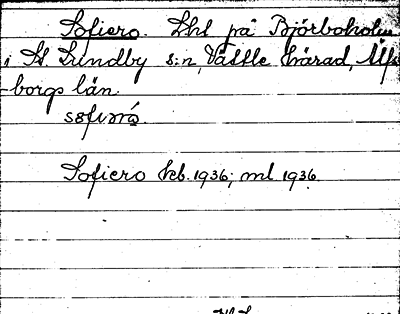 Sofiero. Lht på Björboholm
i St. Lundby s:n, Vättle härad, Älfs
-borgs län.
Sofiero kb. 1936; ml 1936.